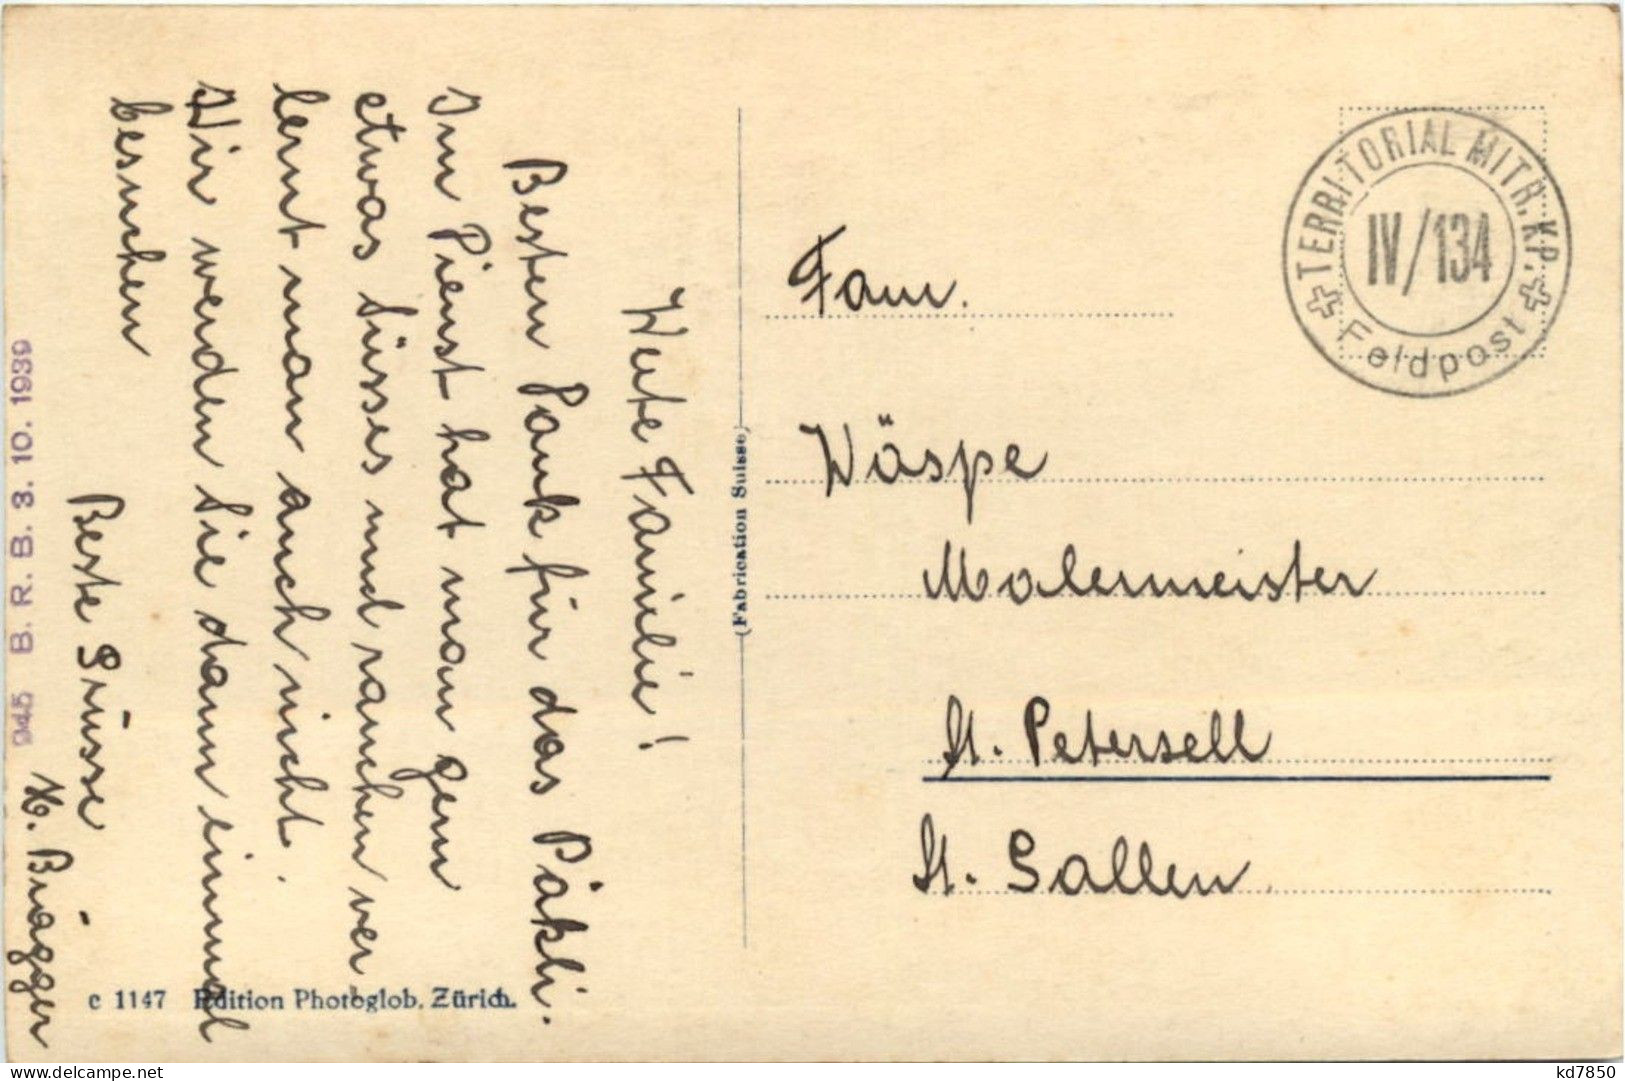 Werte Familie!
Besten Dank für das Päkli.
Im Dienst hat man gern
etwas Süsses und rauchen ver
lernt man auch nicht.
Wir werden Sie dann einmal
besuchen
Beste Grüsse
H. Brägger
945 B. R. B. 3. 10. 1939
c 1147 Edition Photoglob. Zürich.
(Fabrication Suisse)
TERRITORIAL MITR. KP.
IV/134
Feldpost
Fam.
Wäspe
Malermeister
St. Petersell
St. Gallen
kd7850